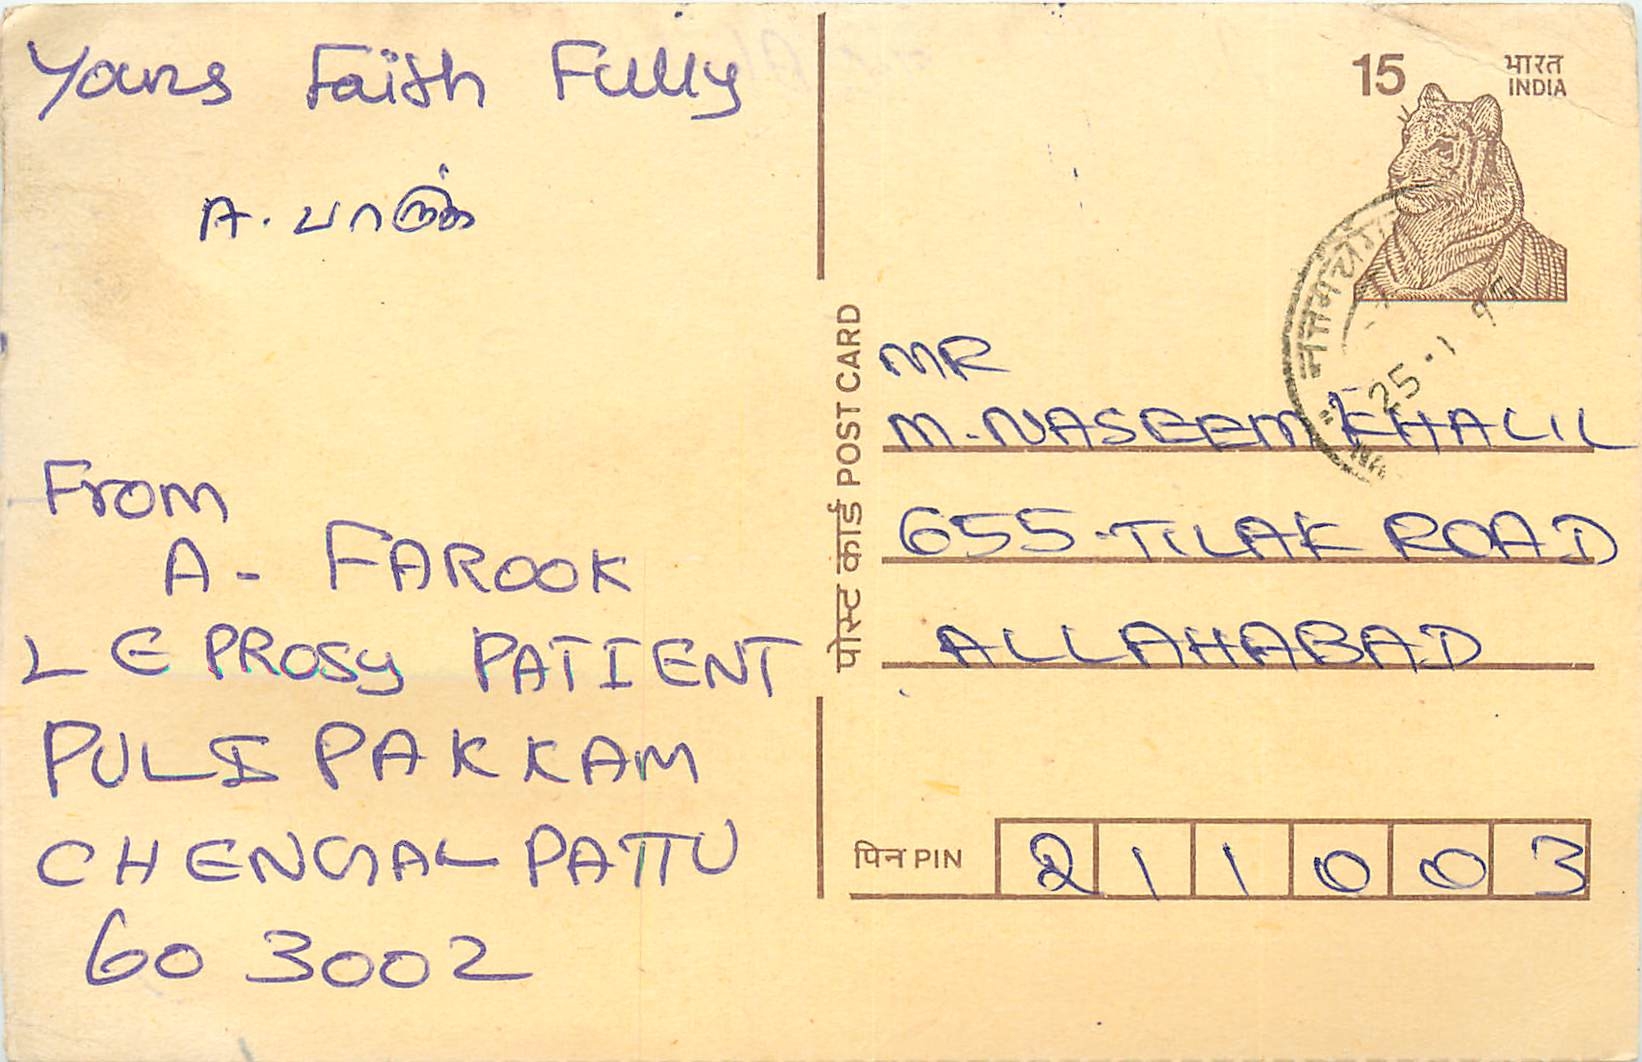 Yours Faith Fully
A. பாருக்
From
A - FAROOK
LEPROSY PATIENT
PULI PAKKAM
CHENGAL PATTU
60 3002
पोस्ट कार्ड POST CARD
15
भारत
INDIA
25
MR
M. NASEEM KHALIL
655-TILAK ROAD
ALLAHABAD
पिन PIN 2 1 1 0 0 3